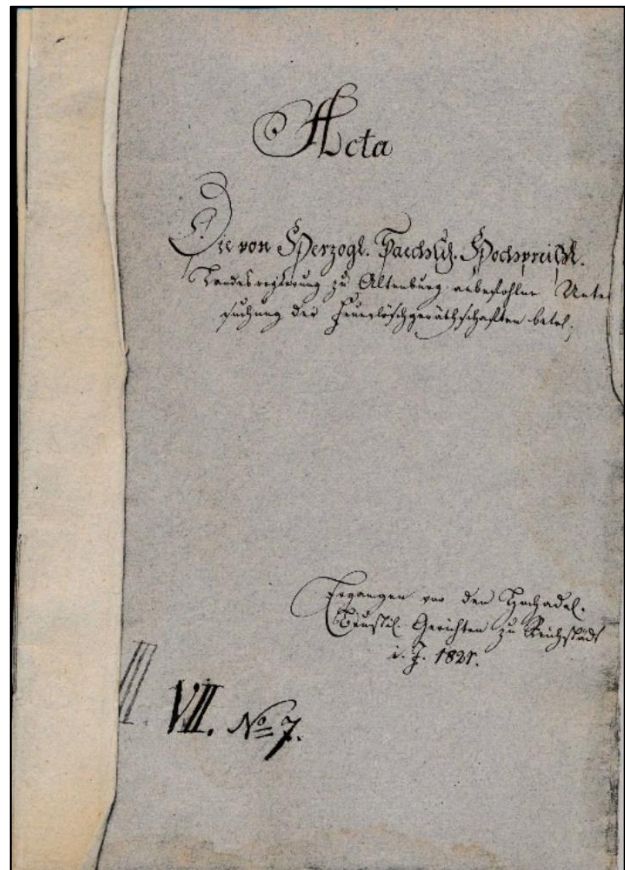 Acta
Die von Herzogl. Saechs. Hochpreisl.
Landesregierung zu Altenburg anbefohlne Unter
suchung der Feuerlöschgeräthschaften betrf;
Ergangen vor den Hochadel.
Gerichten zu Reichstädt
i. J. 1821.
III.
VII. No 7.